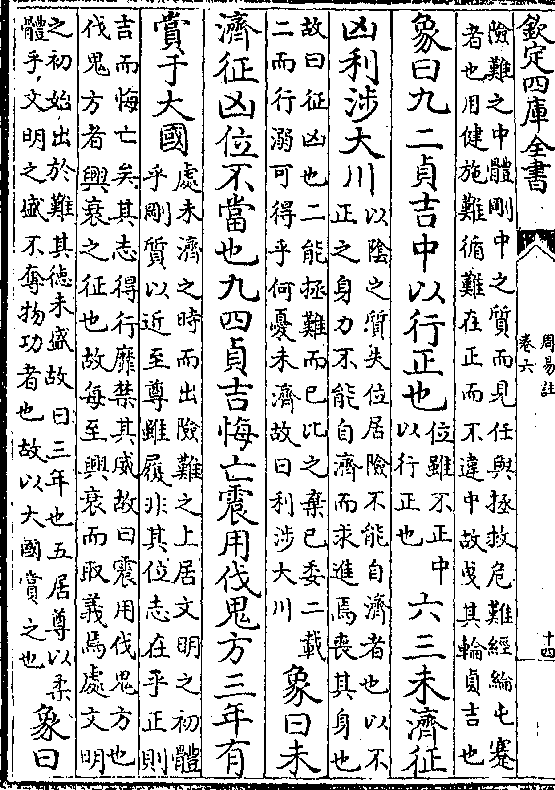 欽定四庫全書
周易註
卷六
十四
險難之中體剛中之質而見任與拯救危難經綸屯蹇
者也用健施難循難在正而不違中故曵其輪貞吉也
象曰九二貞吉中以行正也
位雖不正中
以行正也
六三未濟征
凶利涉大川
以陰之質失位居險不能自濟者也以不
正之身力不能自濟而求進焉喪其身也
故曰征凶也二能拯難而已比之棄已委二載
二而行溺可得乎何憂未濟故曰利涉大川
象曰未
濟征凶位不當也九四貞吉悔亡震用伐鬼方三年有
賞于大國
處未濟之時而出險難之上居文明之初體
乎剛質以近至尊雖履非其位志在乎正則
吉而悔亡矣其志得行靡禁其威故曰震用伐鬼方也
伐鬼方者興衰之征也故每至興衰而取義焉處文明
之初始出於難其德未盛故曰三年也五居尊以柔
體乎文明之盛不奪物功者也故以大國賞之也
象曰